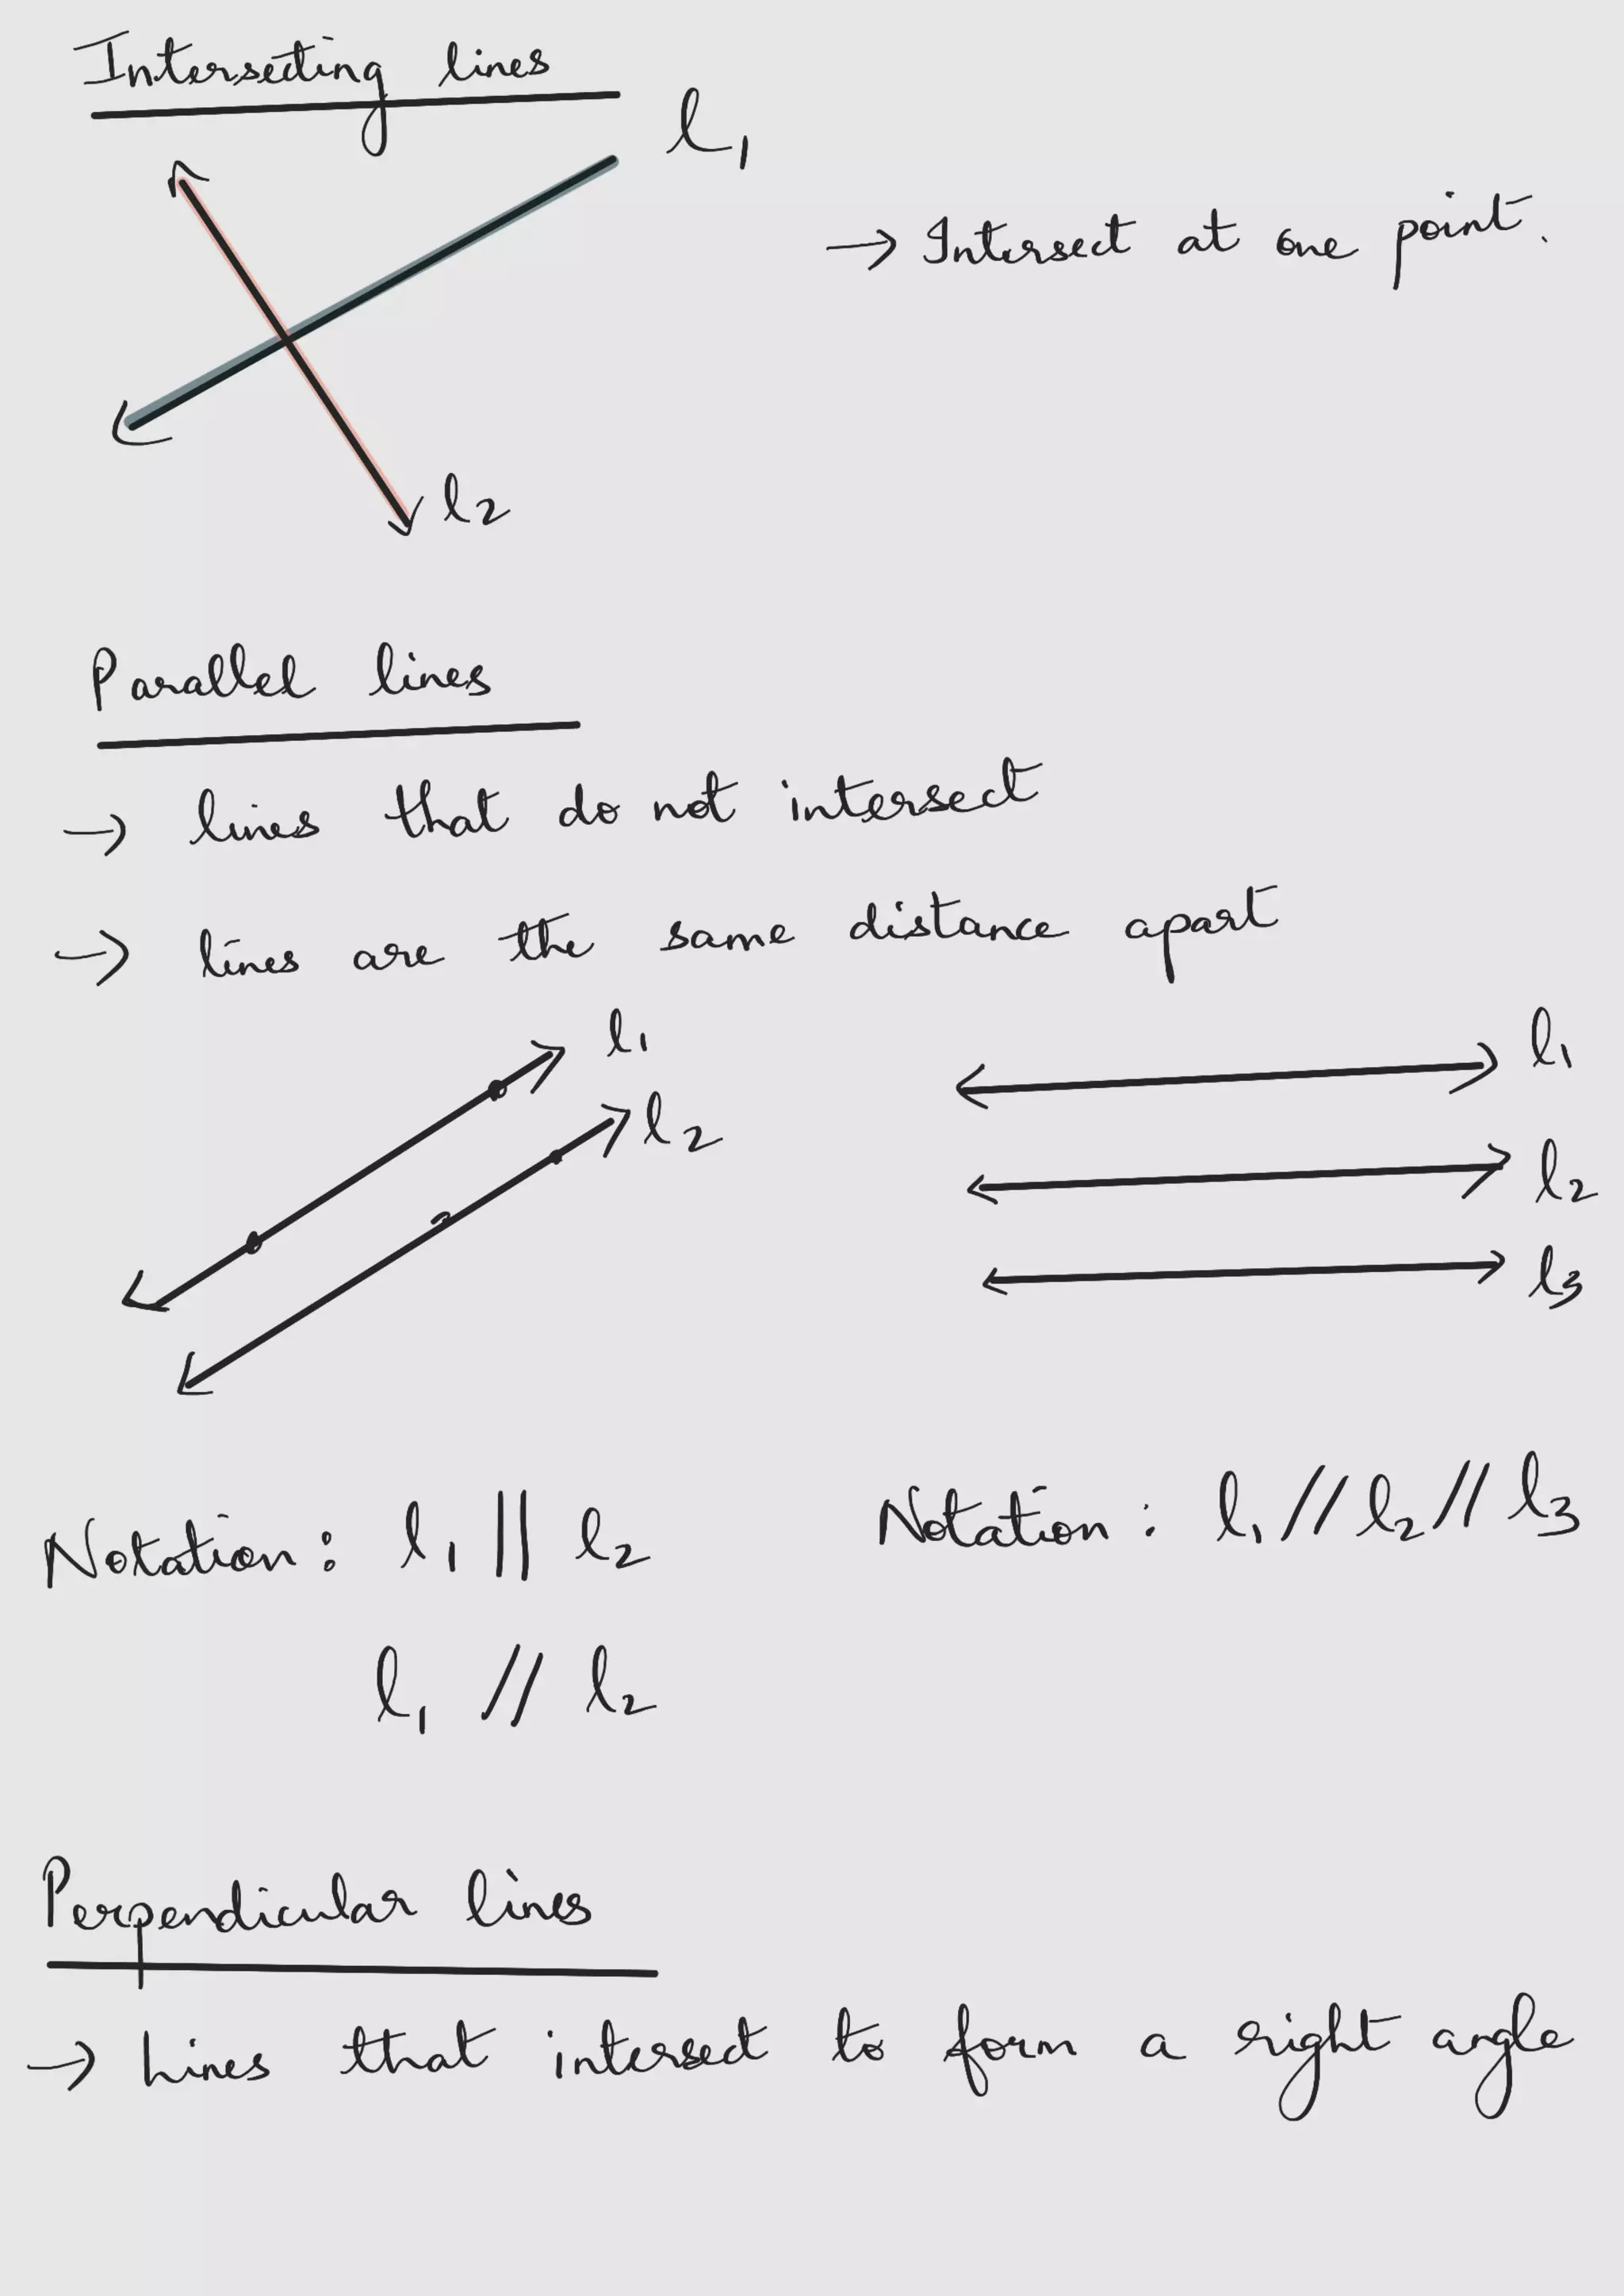 Intersecting lines
l₁
→ Intersect at one point.
l₂
Parallel lines
→ lines that do not intersect
→ lines are the same distance apart
l₁
l₂
l₁
l₂
l₃
Notation: l₁ || l₂
l₁ // l₂
Notation: l₁ // l₂ // l₃
Perpendicular lines
→ Lines that intersect to form a right angle